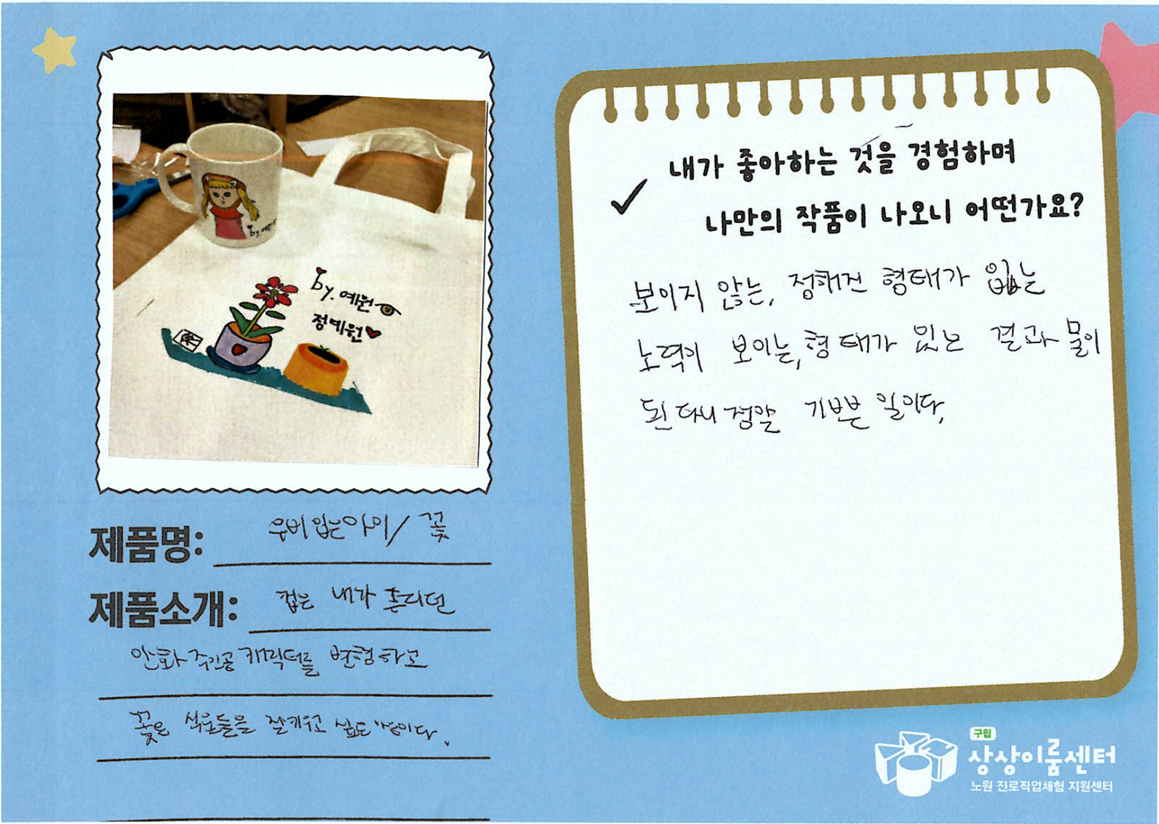 by. 예원
정예원
제품명: 우비입은아이/ 꽃
제품소개: 컵은 내가 즐리던
만화 주인공 캐릭터를 변형하고
꽃은 식물들을 잘키우고 싶은
내가 좋아하는 것을 경험하며
나만의 작품이 나오니 어떤가요?
보이지 않는, 정해진 형태가 없는
노력이 보이는, 형태가 있는 결과물이
된다니 정말 기쁜 일이다.
구립
상상이룸센터
노원 진로직업체험 지원센터